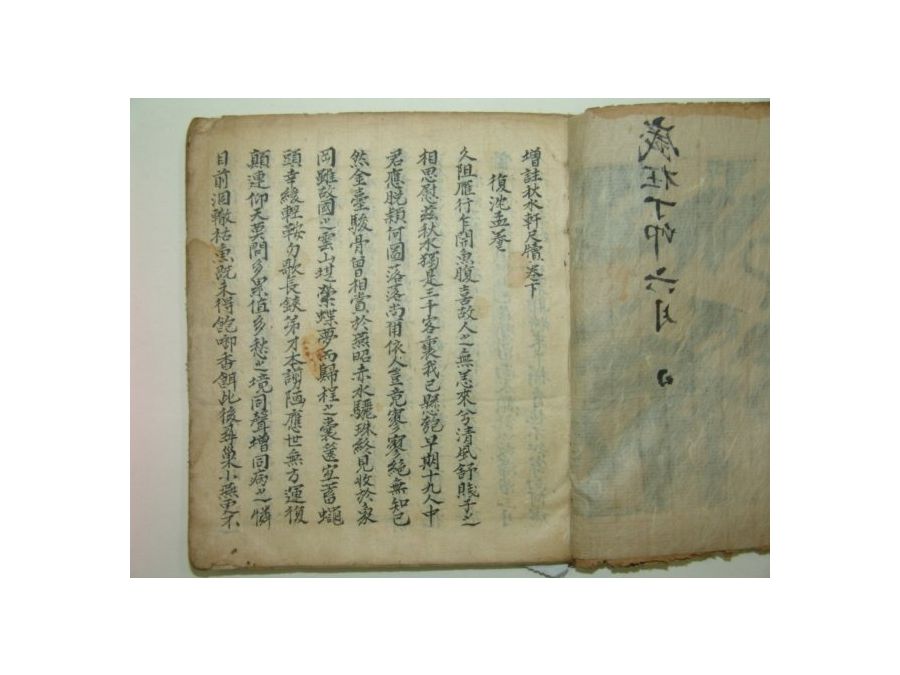 歲在丁卯六月 日
增註秋水軒尺牘卷下
復沈孟養
久阻雁行乍開魚腹喜故人之無恙來兮清風舒賤子之
相思慰茲秋水獨是三十客裏我已縣匏早期十九人中
君應脫穎何圖落落尚爾依人豈竟寥寥絕無知己
然金臺駿骨曾相賞於燕昭赤水驪珠終見收於象
岡雖故國之雲山堪縈蝶夢而歸程之囊篋宜蓄蠅
頭幸緩輕鞍勿歌長鋏弟才本謭陋應世無方運復
顛連仰天莫問多累值多愁之境同聲增同病之憐
目前涸轍枯魚既未得飽啣香餌此後尋巢小燕更不